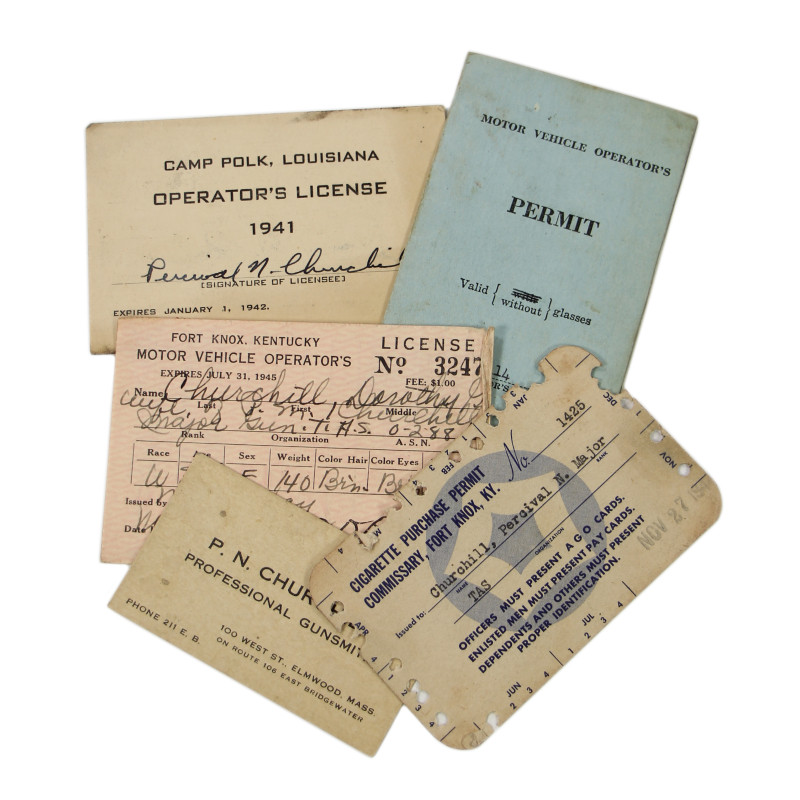 CAMP POLK, LOUISIANA
OPERATOR'S LICENSE
1941
Percival N. Churchill
(SIGNATURE OF LICENSEE)
EXPIRES JANUARY 1, 1942.
MOTOR VEHICLE OPERATOR'S
PERMIT
Valid { without } glasses
14
FORT KNOX, KENTUCKY LICENSE
MOTOR VEHICLE OPERATOR'S Nº 3247
EXPIRES JULY 31, 1945 FEE: $1.00
Name Churchill, Dorothy
Last First Middle
Churchill
Major Gun. T.A.S. 0-2-88
Rank Organization A. S. N.
Race Sex Weight Color Hair Color Eyes
W 140 Brn
Issued by
Date
P. N. CHUR
PROFESSIONAL GUNSMI
PHONE 211 E. B.
100 WEST ST., ELMWOOD, MASS.
ON ROUTE 106 EAST BRIDGEWATER
CIGARETTE PURCHASE PERMIT
COMMISSARY, FORT KNOX, KY.
No. 1425
Churchill, Percival N. Major
NAME RANK
Issued to: TAS
ORGANIZATION
OFFICERS MUST PRESENT A G O CARDS.
ENLISTED MEN MUST PRESENT PAY CARDS.
DEPENDENTS AND OTHERS MUST PRESENT
PROPER IDENTIFICATION.
NOV 27 19
JAN 3
FEB
3 4
DEC
NOV
APR
4
1 2 3 4
JUN
2 3 4
JUL
1 2 3 4